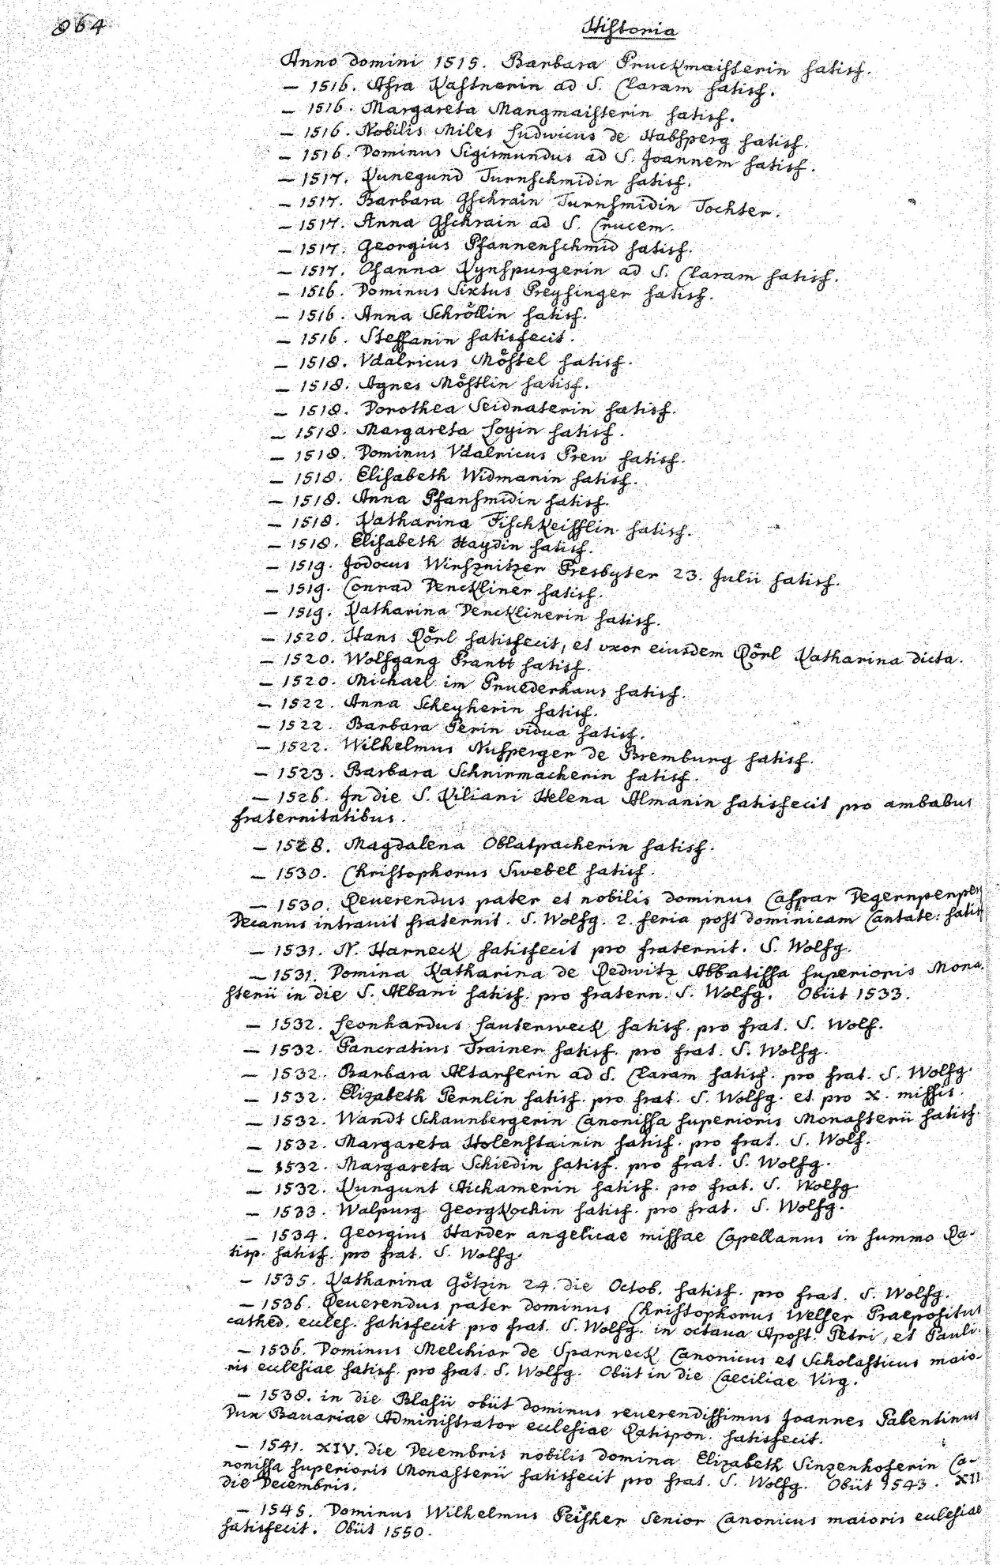 864
Historia
Anno domini 1515. Barbara Pruckmaisterin satisf.
— 1516. Afra Kastnerin ad S. Claram satisf.
— 1516. Margareta Mangmaisterin satisf.
— 1516. Nobilis Miles Ludwicus de Habsperg satisf.
— 1516. Dominus Sigismundus ad S. Joannem satisf.
— 1517. Kunegund Turnschmidin satisf.
— 1517. Barbara Gschrain Turnsmidin Tochter.
— 1517. Anna Gschrain ad S. Crucem.
— 1517. Georgius Pfannenschmid satisf.
— 1517. Osanna Kynspurgerin ad S. Claram satisf.
— 1516. Dominus Sixtus Preysinger satisf.
— 1516. Anna Schröllin satisf.
— 1516. Steffanin satisfecit.
— 1518. Vdalricus Möstel satisf.
— 1518. Agnes Möstlin satisf.
— 1518. Dorothea Seidnaterin satisf.
— 1518. Margareta Loyin satisf.
— 1518. Dominus Vdalricus Prew satisf.
— 1518. Elisabeth Widmanin satisf.
— 1518. Anna Pfansmidin satisf.
— 1518. Katharina Fischkeifflin satisf.
— 1518. Elisabeth Haydin satisf.
— 1519. Jodocus Winsznitzer Presbyter 23. Julii satisf.
— 1519. Conrad Denckliner satisf.
— 1519. Katharina Dencklinerin satisf.
— 1520. Hans Körl satisfecit, et vxor eiusdem Körl Katharina dicta.
— 1520. Wolfgang Prantt satisf.
— 1520. Michael im Pruederhaus satisf.
— 1522. Anna Scheyherin satisf.
— 1522. Barbara Perin vidua satisf.
— 1522. Wilhelmus Nusperger de Bremburg satisf.
— 1523. Barbara Schnirmacherin satisf.
— 1526. In die S. Kiliani Helena Almanin satisfecit pro ambabus
fraternitatibus.
— 1528. Magdalena Oblatpacherin satisf.
— 1530. Christophorus Swebel satisf.
— 1530. Reuerendus pater et nobilis dominus Caspar
Decanus intrauit fraternit. S. Wolfg. 2. feria post dominicam Cantate: satisf
— 1531. N. Harneck satisfecit pro fraternit. S. Wolfg.
— 1531. Domina Katharina de Redwitz Abbatissa superioris Mona-
sterii in die S. Albani satisf. pro fratern. S. Wolfg. Obiit 1533.
— 1532. Leonhardus Lautenweck satisf. pro frat. S. Wolf.
— 1532. Pancratius Trainer satisf. pro frat. S. Wolfg.
— 1532. Barbara Altarferin ad S. Claram satisf. pro frat. S. Wolfg.
— 1532. Elizabeth Pernlin satisf. pro frat. S. Wolfg. et pro X. missis.
— 1532. Wandt Schaunbergerin Canonissa superioris Monasterii satisf.
— 1532. Margareta Holenstainin satisf. pro frat. S. Wolf.
— 1532. Margareta Schiedin satisf. pro frat. S. Wolfg.
— 1532. Kungunt Aichamerin satisf. pro frat. S. Wolfg.
— 1533. Walpurg Georgkochin satisf. pro frat. S. Wolfg.
— 1534. Georgius Harder angelicae missae Capellanus in summo Ra-
tisp. satisf. pro frat. S. Wolfg.
— 1535. Katharina Götzin 24. die Octob. satisf. pro frat. S. Wolfg.
— 1536. Reuerendus pater dominus Christophorus Welser Praepositus
cathed. eccles. satisfecit pro frat. S. Wolfg. in octaua Apost. Petri, et Pauli.
— 1536. Dominus Melchior de Sparneck Canonicus et Scholasticus maio-
ris ecclesiae satisf. pro frat. S. Wolfg. Obiit in die Caeciliae Virg.
— 1538. in die Blasii obiit dominus reuerendissimus Joannes Palentinus
Dux Bauariae Administrator ecclesiae Ratispon. satisfecit.
— 1541. XIV. die Decembris nobilis domina Elizabeth Sinzenhoferin Ca-
nonissa superioris Monasterii satisfecit pro frat. S. Wolfg. Obiit 1543. XII
die Decembris.
— 1545. Dominus Wilhelmus Peisker Senior Canonicus maioris ecclesiae
satisfecit. Obiit 1550.